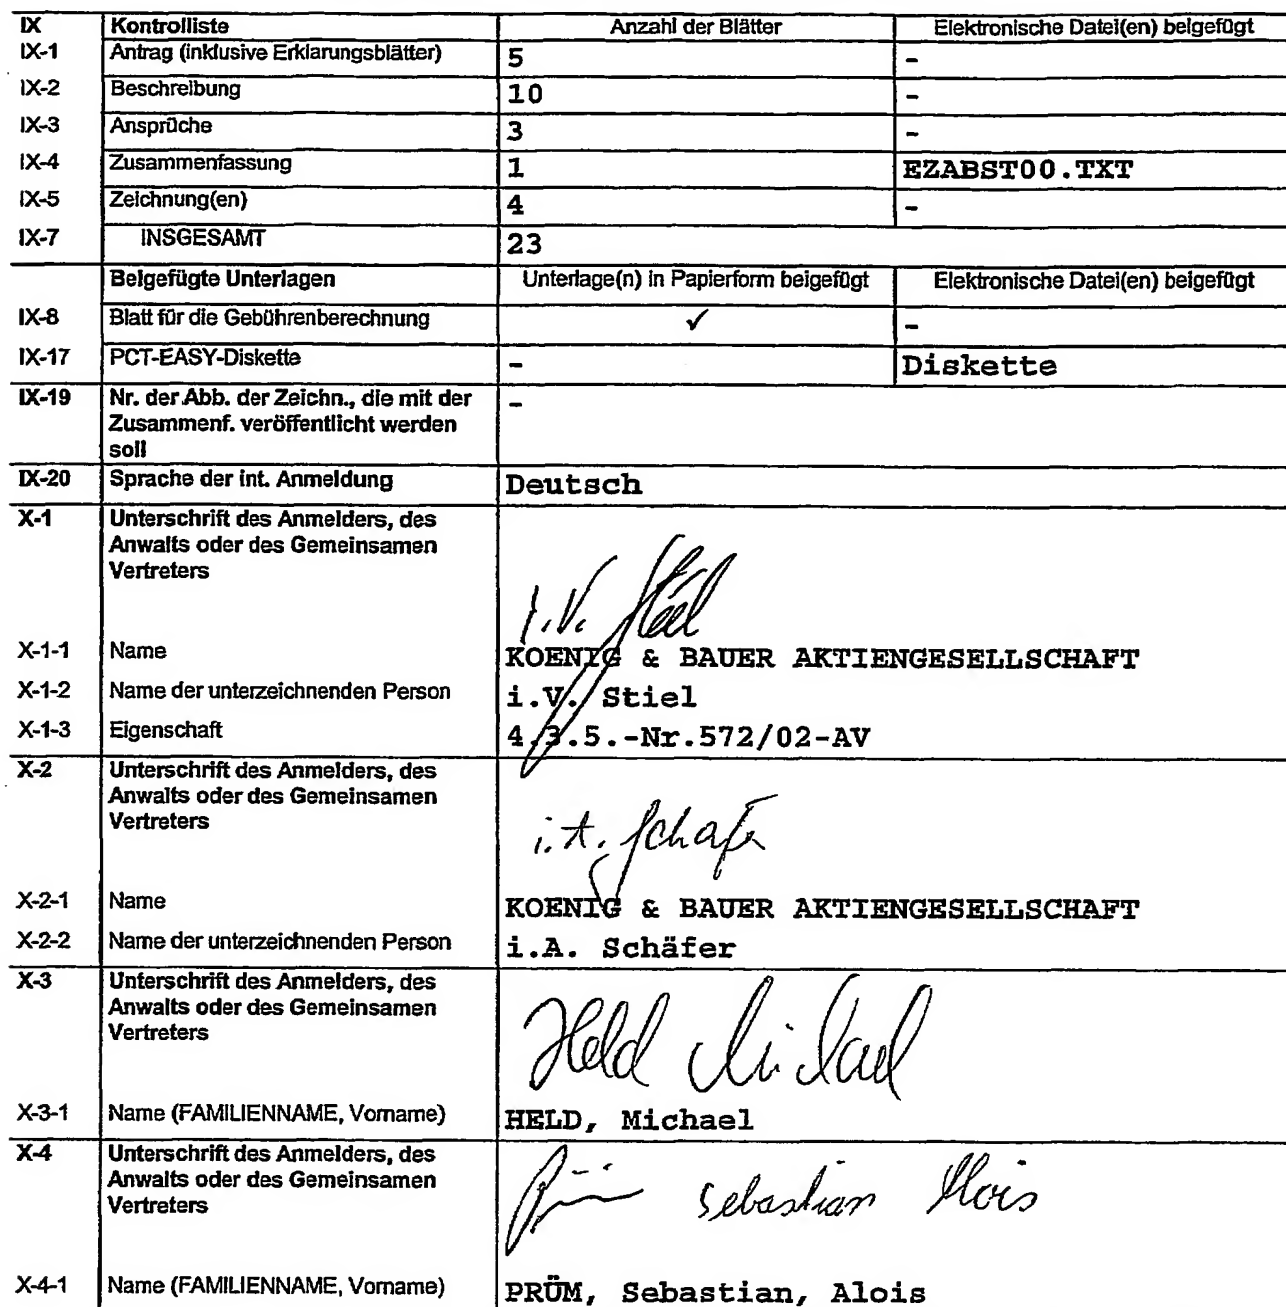 IX Kontrolliste Anzahl der Blätter Elektronische Datei(en) beigefügt
IX-1 Antrag (inklusive Erklärungsblätter) 5 -
IX-2 Beschreibung 10 -
IX-3 Ansprüche 3 -
IX-4 Zusammenfassung 1 EZABST00.TXT
IX-5 Zeichnung(en) 4 -
IX-7 INSGESAMT 23
Beigefügte Unterlagen Unterlage(n) in Papierform beigefügt Elektronische Datei(en) beigefügt
IX-8 Blatt für die Gebührenberechnung ✓ -
IX-17 PCT-EASY-Diskette - Diskette
IX-19 Nr. der Abb. der Zeichn., die mit der -
Zusammenf. veröffentlicht werden
soll
IX-20 Sprache der int. Anmeldung Deutsch
X-1 Unterschrift des Anmelders, des
Anwalts oder des Gemeinsamen
Vertreters
i.V. Stiel
X-1-1 Name KOENIG & BAUER AKTIENGESELLSCHAFT
X-1-2 Name der unterzeichnenden Person i.V. Stiel
X-1-3 Eigenschaft 4.3.5.-Nr.572/02-AV
X-2 Unterschrift des Anmelders, des
Anwalts oder des Gemeinsamen
Vertreters
i.A. Schäfer
X-2-1 Name KOENIG & BAUER AKTIENGESELLSCHAFT
X-2-2 Name der unterzeichnenden Person i.A. Schäfer
X-3 Unterschrift des Anmelders, des
Anwalts oder des Gemeinsamen
Vertreters
Held Michael
X-3-1 Name (FAMILIENNAME, Vorname) HELD, Michael
X-4 Unterschrift des Anmelders, des
Anwalts oder des Gemeinsamen
Vertreters
Prüm Sebastian Alois
X-4-1 Name (FAMILIENNAME, Vorname) PRÜM, Sebastian, Alois